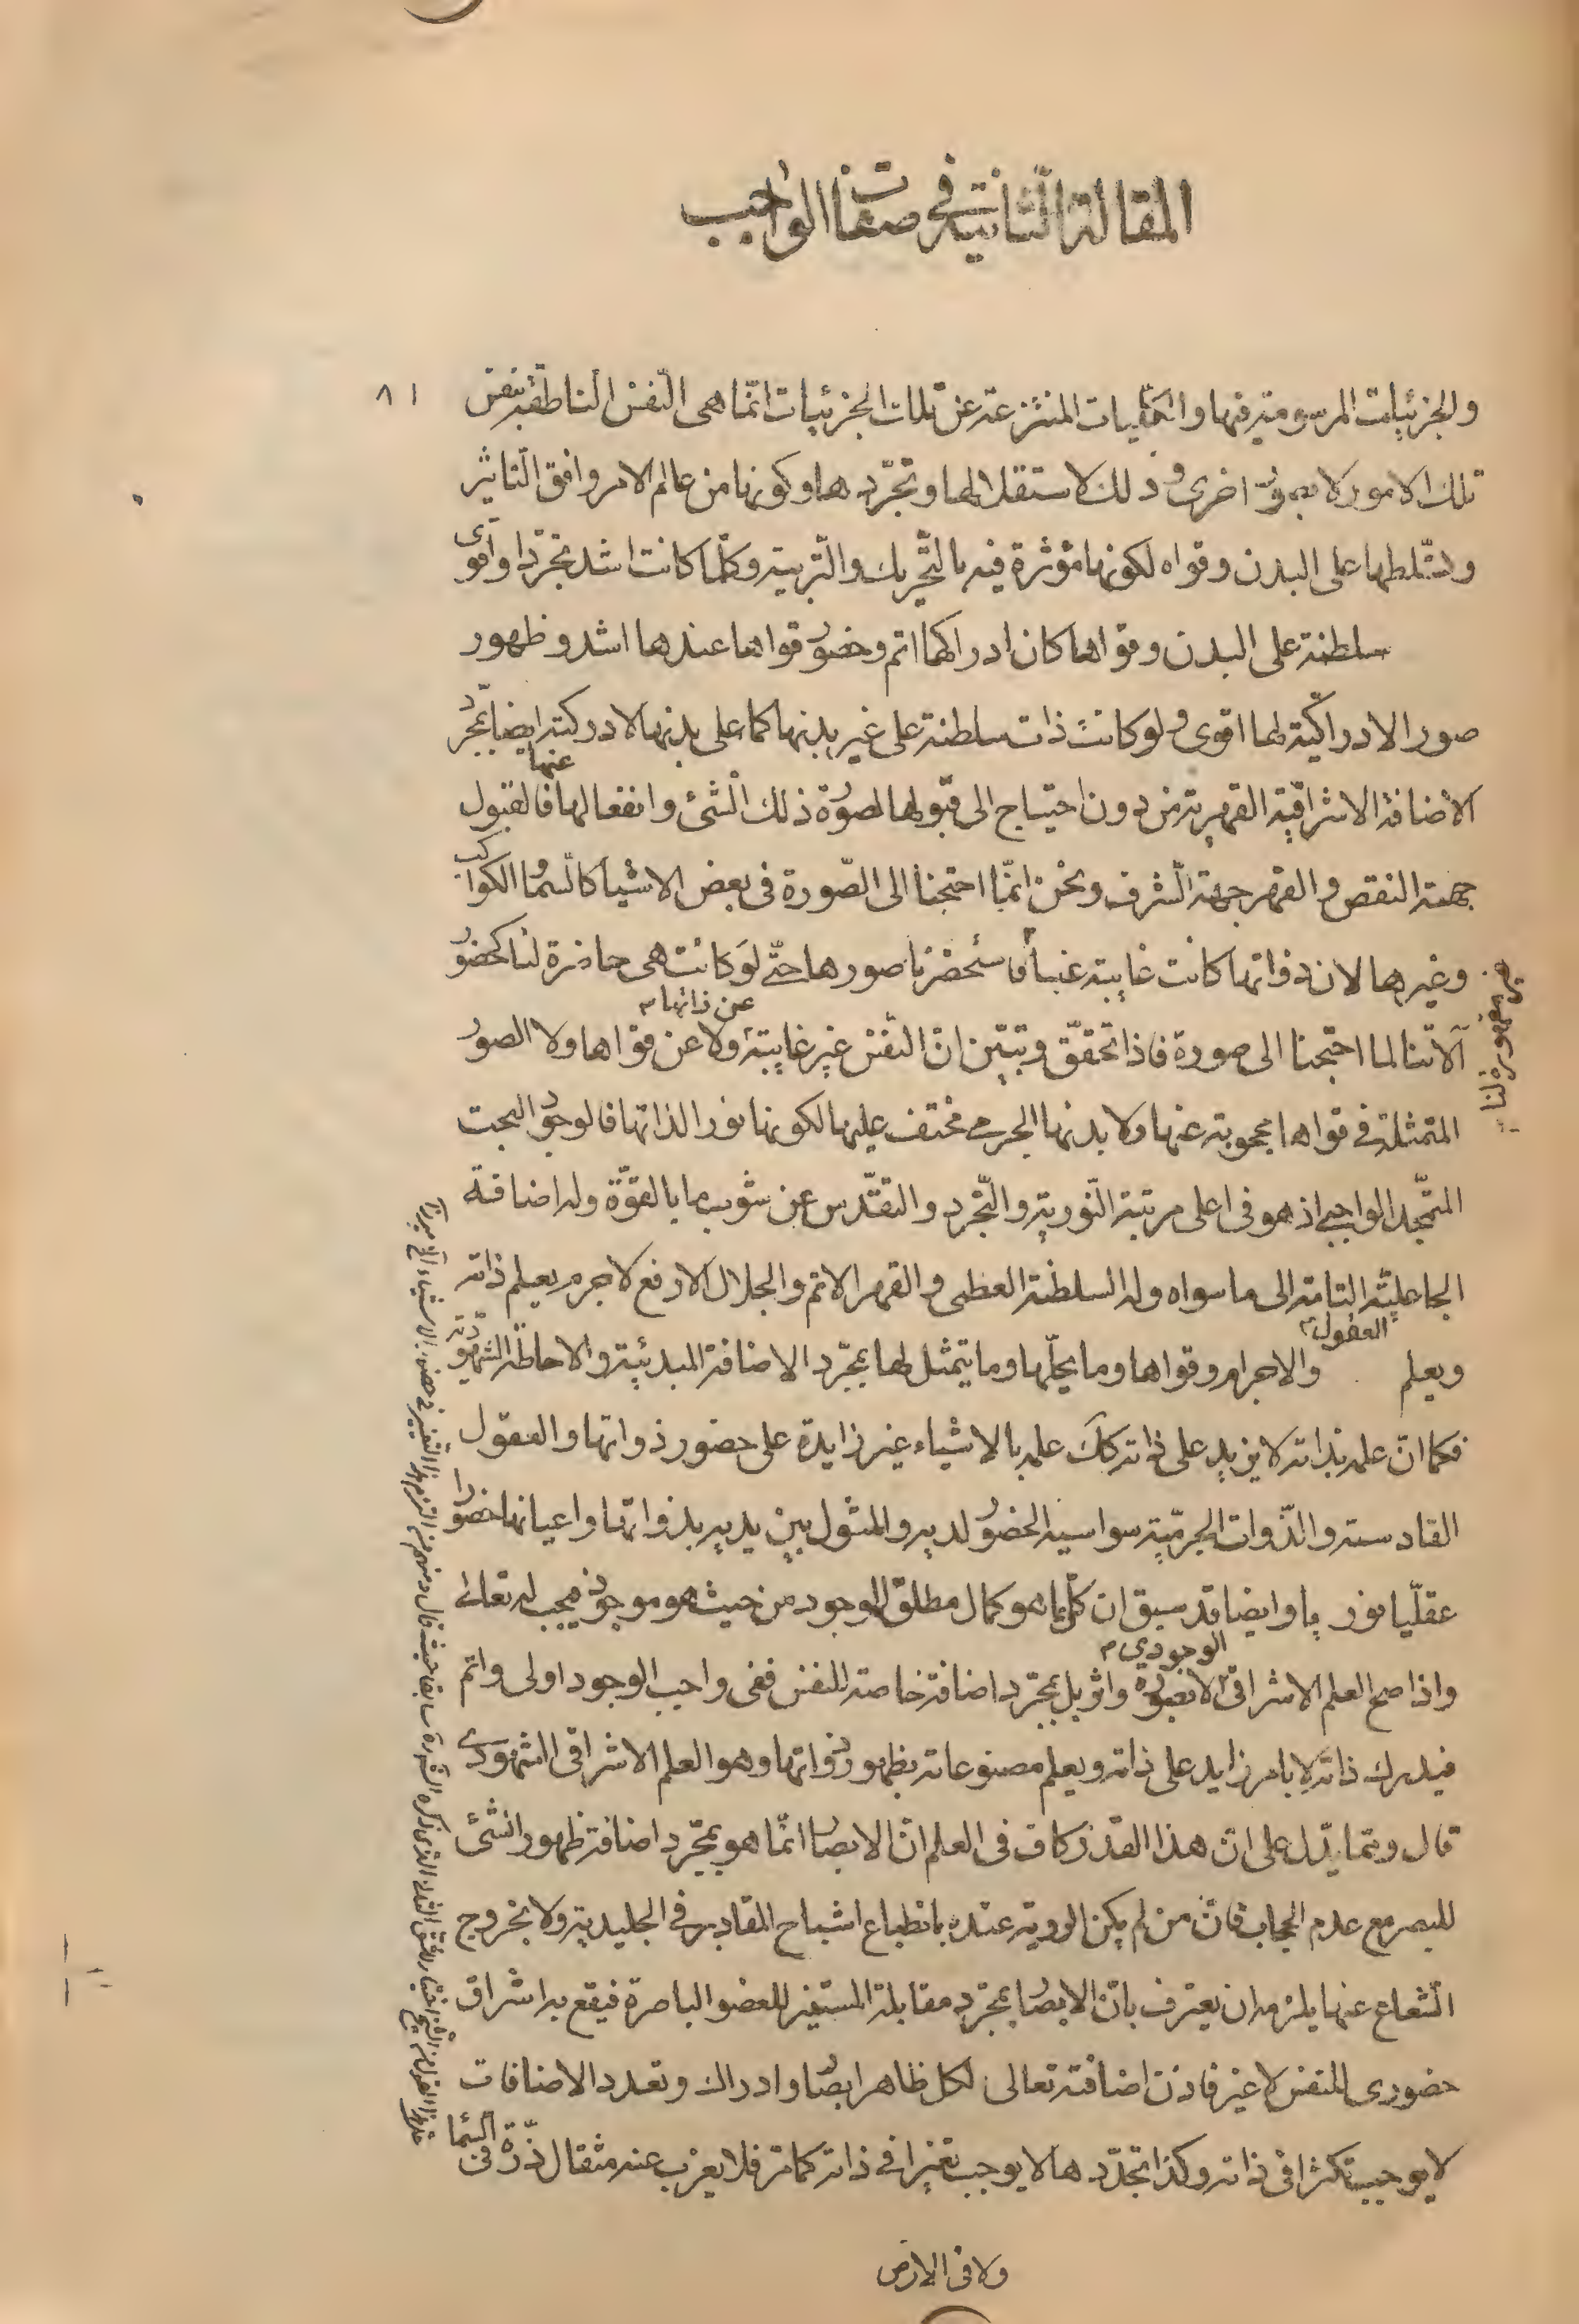 المقالة الثانية في صفات الواجب
٨١
والجزئيات المرسومة فيها والكليات المنتزعة عن تلك الجزئيات انّما هى النّفس النّاطقة بنفس
تلك الامور لا بصورة اخرى وذلك لاستقلالها وتجرّدها وكونها من عالم الامر وافق التاثير
وتسلّطها على البدن وقواه لكونها مؤثرة فيه بالتّحريك والتّربية وكلّما كانت اشد تجرّدا واقوى
سلطنة على البدن وقواها كان ادراكها اتم وحضور قواها عندها اشد وظهور
صور الادراكيّة لها اقوى ولو كانت ذات سلطنة على غير بدنها كما على بدنها لادركته ايضا بمجرّد
الاضافة الاشراقيّة القهرية من دون احتياج الى قبولها لصورة ذلك الشئ وانفعالها عنها فالقبول
جهة النقص والقهر جهة الشرف ونحن انّما احتجنا الى الصّورة فى بعض الاشيا كالسّما والكواكب
وغيرها لان ذواتها كانت غايبة عنا فاستحضرنا صورها حتّى لو كانت هى حاضرة لنا كحضور
مقهورة لنا
آلاتنا لما احتجنا الى صورة فاذا تحقّق وتبيّن انّ النّفس غير غايبة عن ذاتها ولا عن قواها ولا الصور
المتمثلة فى قواها محجوبة عنها ولا بدنها الجرمى مختف عليها لكونها نورا لذاتها فالوجود البحت
المتمجّد الواجبى اذ هو فى اعلى مرتبة النّورية والتّجرد والتقدّس عن شوب ما بالقوّة وله اضافة
الجاعليّة التامة الى ما سواه وله السلطنة العظمى والقهر الاتم والجلال الارفع لا جرم يعلم ذاته
ويعلم العقول والاجرام وقواها وما يحلّها وما يتمثل لها بمجرّد الاضافة المبدئية والاحاطة الشهوديّة
فكما انّ علمه بذاته لا يزيد على ذاته كك علمه بالاشياء غير زايدة على حضور ذواتها والعقول
القادسة والذّوات الجرميّة سواسية الحضور لديه والمثول بين يديه بذواتها واعيانها حضورا
عقليّا نوريا وايضا قد سبق ان كلّ ما هو كمال مطلق للوجود من حيث هو موجود فيجب له تعالى
واذا صح العلم الاشراقى الوجودي لا بصورة واثر بل بمجرّد اضافة خاصة للنفس ففى واجب الوجود اولى واتم
فيدرك ذاته لا بامر زايد على ذاته ويعلم مصنوعاته بظهور ذواتها وهو العلم الاشراقى الشهودى
قال وممّا يدّل على انّ هذا القدر كاف فى العلم انّ الابصار انّما هو بمجرّد اضافة ظهور الشئ
للبصر مع عدم الحجاب فانّ من لم يكن الروية عنده بانطباع اشباح المقادير فى الجليدية ولا بخروج
الشّعاع عنها يلزمه ان يعترف بانّ الابصار بمجرّد مقابلة المستنير للعضو الباصرة فيقع به اشراق
حضورى للنفس لا غير فاذن اضافته تعالى لكل ظاهر ابصار وادراك وتعدد الاضافات
لا يوجب تكثرا فى ذاته وكذا تجدّدها لا يوجب تغيّرا فى ذاته كما مر فلا يعزب عنه مثقال ذرّة فى السّما
ولا فى الارض